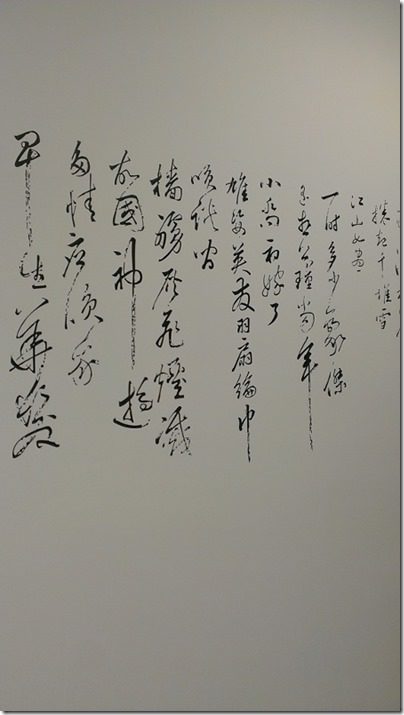 捲起千堆雪
江山如畫
一時多少豪傑
遙想公瑾當年
小喬初嫁了
雄姿英發羽扇綸巾
咲談間
檣艣灰飛煙滅
故國神遊
多情應咲我
早生華髮